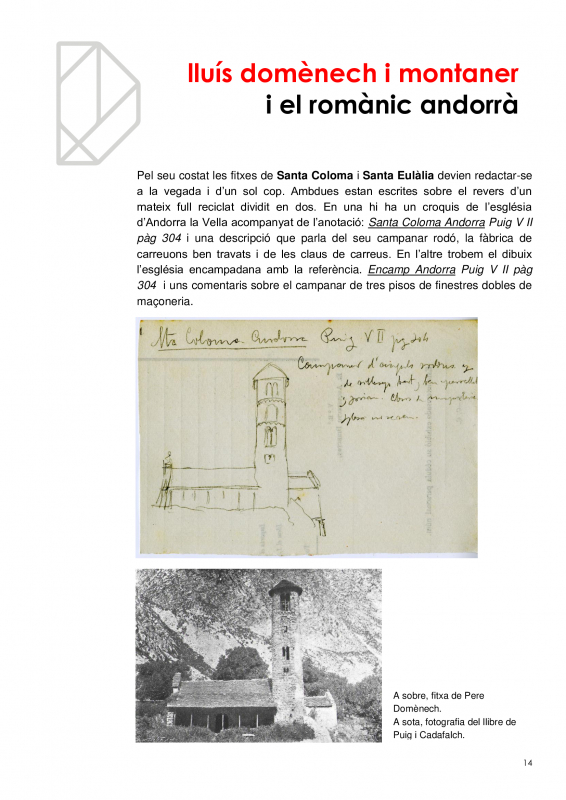 lluís domènech i montaner
i el romànic andorrà
Pel seu costat les fitxes de Santa Coloma i Santa Eulàlia devien redactar-se
a la vegada i d'un sol cop. Ambdues estan escrites sobre el revers d'un
mateix full reciclat dividit en dos. En una hi ha un croquis de l'església
d'Andorra la Vella acompanyat de l'anotació: Santa Coloma Andorra Puig V II
pàg 304 i una descripció que parla del seu campanar rodó, la fàbrica de
carreuons ben travats i de les claus de carreus. En l'altre trobem el dibuix
l'església encampadana amb la referència. Encamp Andorra Puig V II pàg
304 i uns comentaris sobre el campanar de tres pisos de finestres dobles de
maçoneria.
Sta Coloma Andorra Puig V II pg 304
Campanar
A sobre, fitxa de Pere
Domènech.
A sota, fotografia del llibre de
Puig i Cadafalch.
14